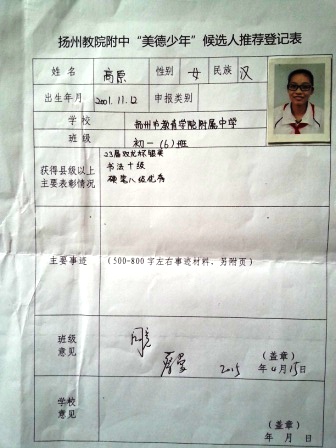 扬州教院附中“美德少年”候选人推荐登记表
姓名 高原 性别 女 民族 汉
出生年月 2001.11.12 申报类别
学校 扬州市教育学院附属中学
班级 初一(6)班
获得县级以上
主要表彰情况
23届双龙杯银奖
书法十级
硬笔八级优秀
主要事迹 (500-800字左右事迹材料,另附页)
班级
意见
同意
(盖章)
2015 年4月15日
学校
意见
(盖章)
年 月 日